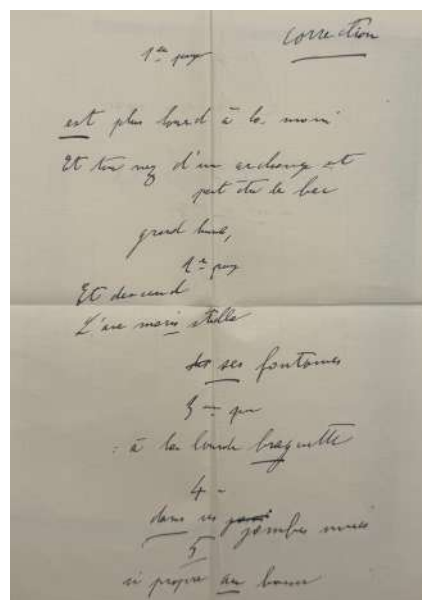 correction
1ère page
est plus lourd à la main
Et ton nez d'un archange et
peut être le bec
grand
2e page
Et descend
L'ave maris stella
des ses fontaines
3 me
à la lourde braguette
4 -
dans ses jambes nues
5
si propre au